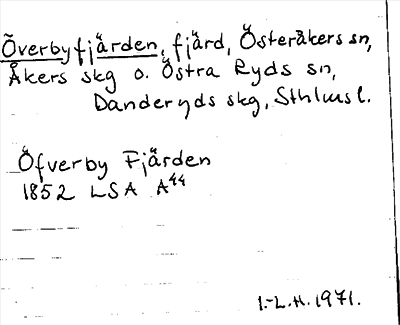 Överbyfjärden, fjärd, Österåkers sn,
Åkers skg o. Östra Ryds sn,
Danderyds skg, Sthlms l.
Öfverby Fjärden
1852 LSA A44
I.-L.H. 1971.